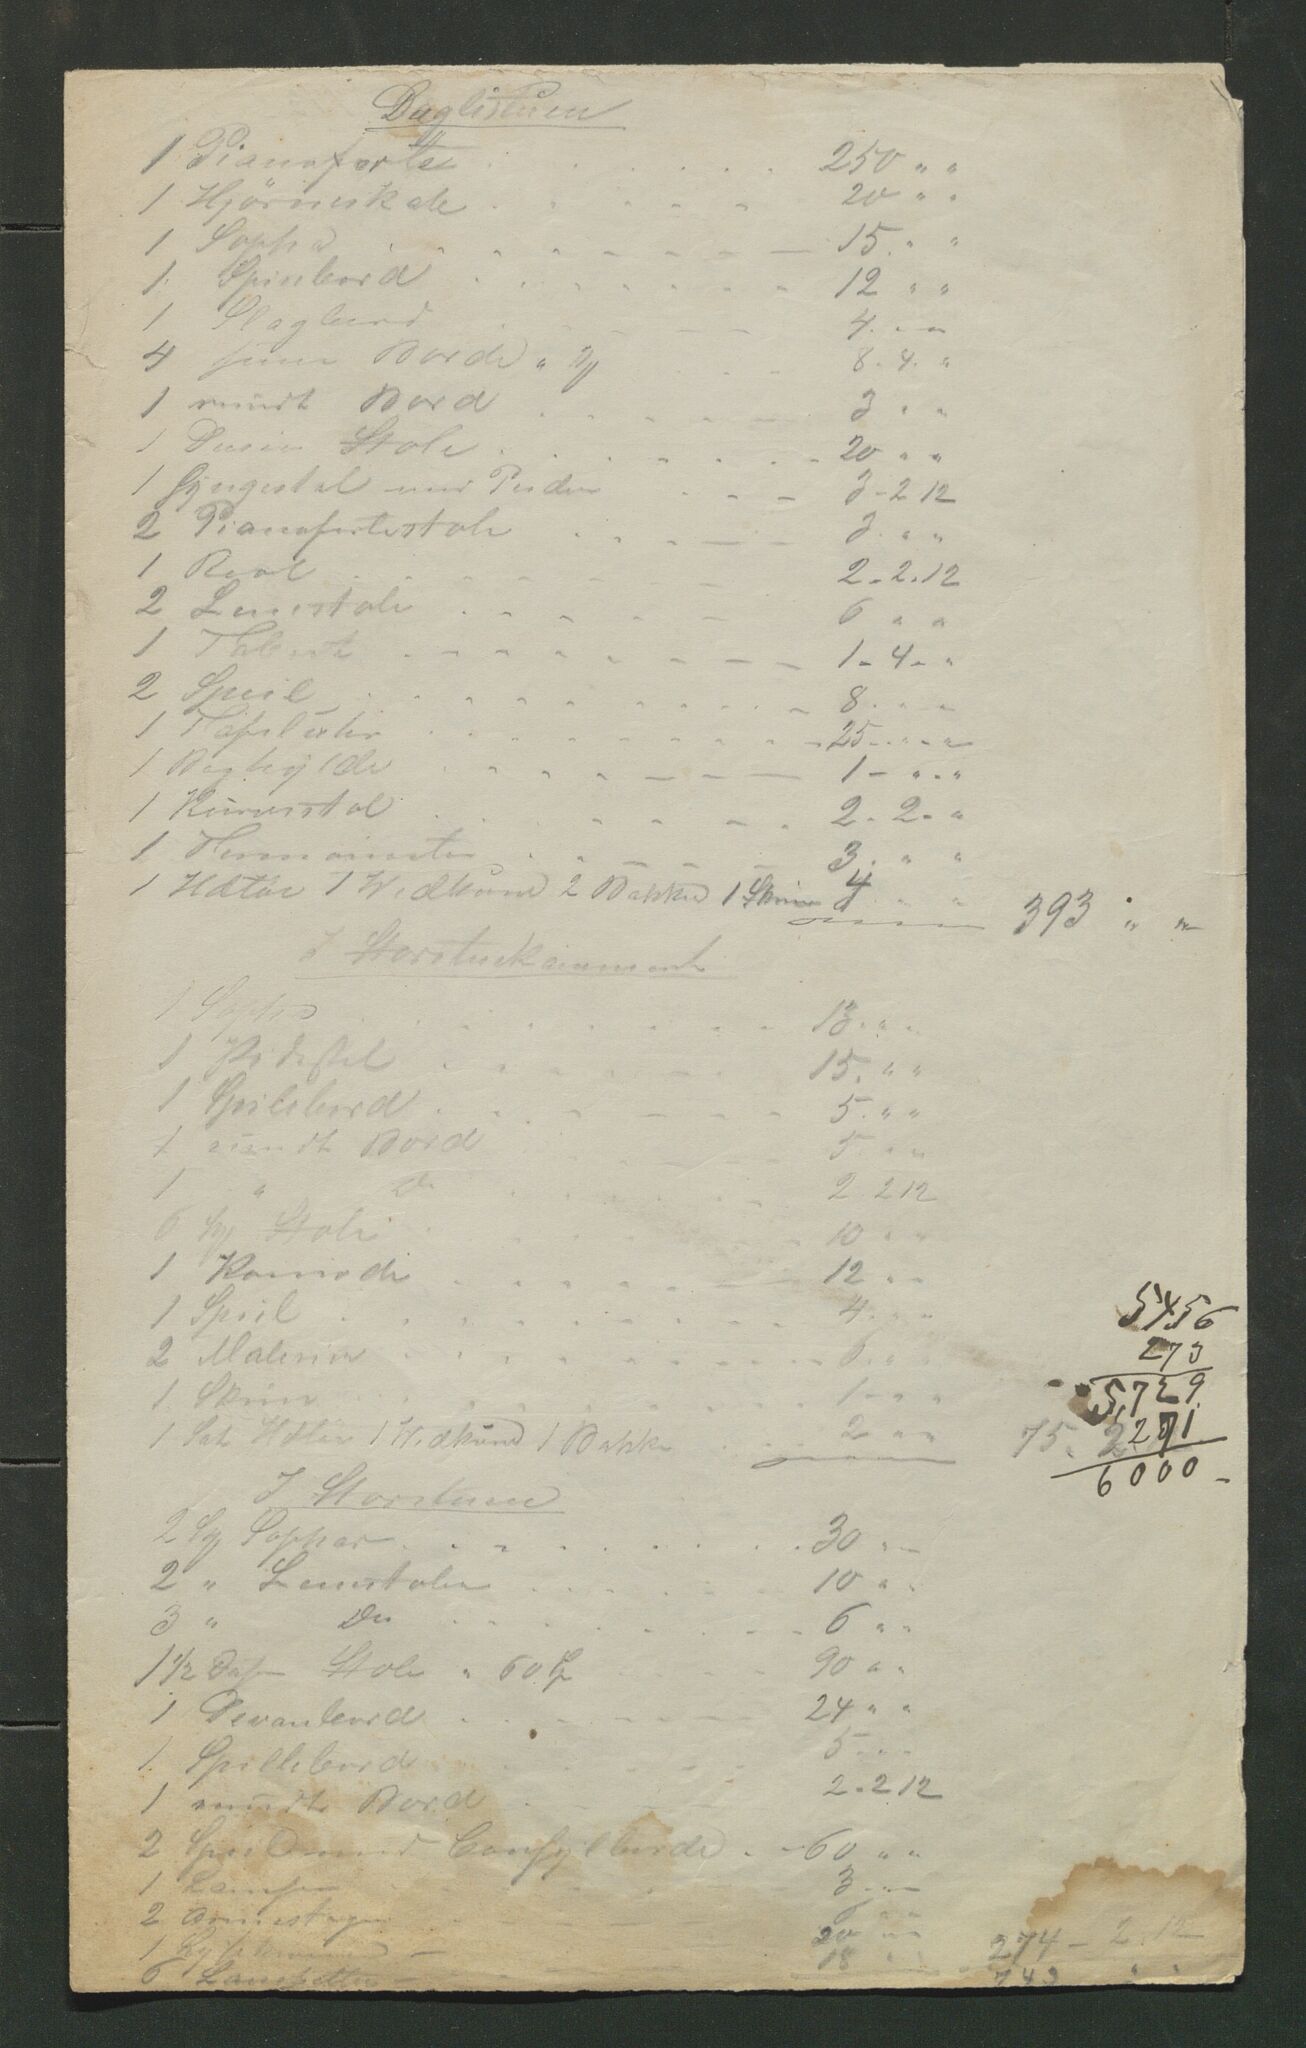 Daglistuen
1 Pianoforte . . . . . 250 " "
1 Hjörneskab . . . . . 20 " "
1 Sopha . . . . . 15 " "
1 Spisebord . . . . . 12 " "
1 Slagbord . . . . . 4 . "
4 smaa Borde " . . . 8 - 4 . "
1 rundt Bord . . . . . 3 " "
1 Dusin Stole . . . . . 20 " "
1 Gyngestol med . . . 3 - 2 12
2 Pianofortestole . . . . 3 . " "
1 Reol . . . . . 2 - 2 . 12
2 Lenestole . . . . . 6 " "
1 . . . . . 1 - 4 - "
2 Speil . . . . . 8 . "
1 Tafeluhr . . . . . 25 - " "
1 Boghylde . . . . . 1 - " . "
1 Kurvestol . . . . . 2 - 2 - "
1 Termometer . . . . . 3 . " "
1 Ildtöi 1 Vedkurv 2 Bakker 1 Skrin 4 " " 393 " "
I Storstuekammerset
1 Sopha . . . . . 13 . " "
1 . . . . . 15 . " "
1 Spillebord . . . . . 5 . " "
1 rundt Bord . . . . . 5 . " "
1 " Do . . . . . 2 2 12
6 Stole . . . . . 10 " "
1 Komode . . . . . 12 " "
1 Speil . . . . . 4 . " "
2 Malerier . . . . . 6 . " "
1 Skrin . . . . . 1 - " "
1 Sæt Ildtöi 1 Vedkurv 1 Bakke . . . 2 " " 75 . 2
5456
273
5729
271
6000 -
I Storstuen
2 Sophaer . . . . . 30 " "
2 " Lenestole . . . . . 10 " "
3 " Do . . . . . 6 " "
1 1/2 Stole " 60 . . . 90 " "
1 Divanbord . . . . . 24 " "
1 Spillebord . . . . . 5 . . .
1 rundt Bord . . . . . 2 - 2 12
2 Speil med . . . 60 " "
1 Lampe . . . . . 3 " "
2 . . . . . 6 " "
1 Lysekrone . . . . . 20 " " 274 - 2 . 12
6 Lampetter . . . . . 18 " " 743 " "